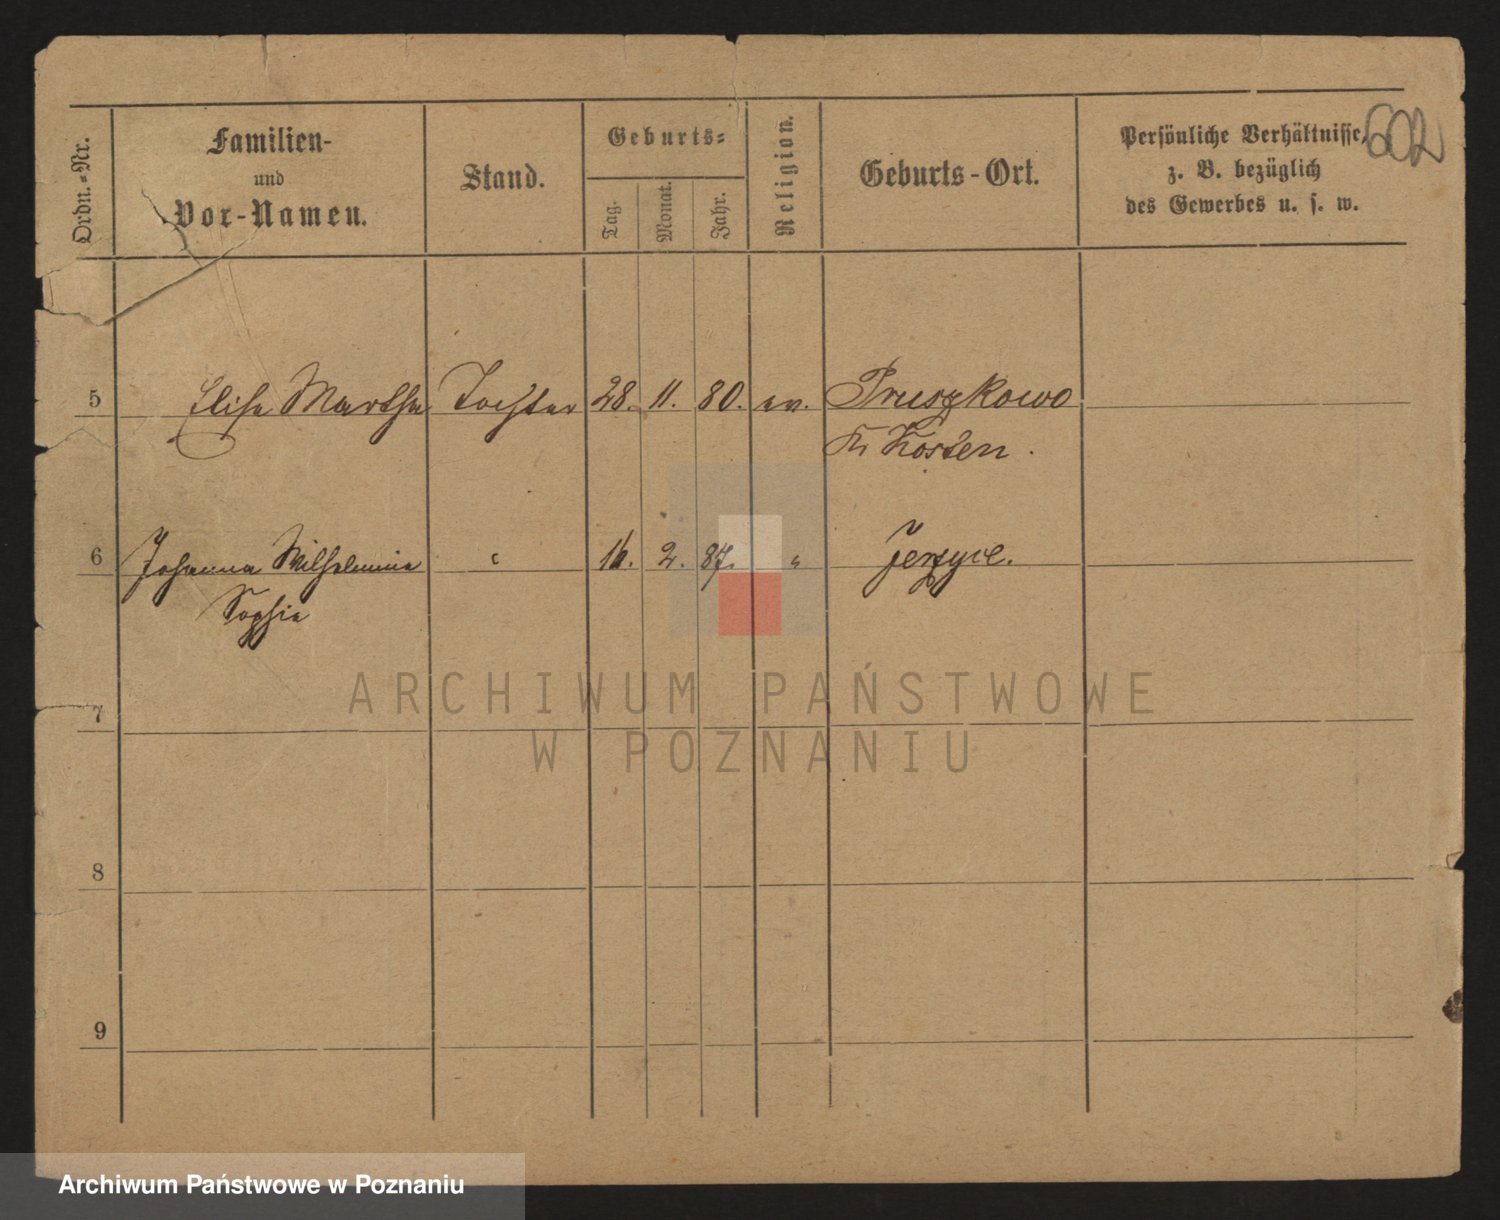 602
Ordn.-Nr.
Familien-
und
Vor-Namen.
Stand.
Geburts-
Tag.
Monat.
Jahr.
Religion.
Geburts-Ort.
Persönliche Verhältnisse,
z. B. bezüglich
des Gewerbes u. s. w.
5 Elise Martha Tochter 28. 11. 80. ev. Pruszkowo
Kr Kosten.
6 Johanna Wilhelmine " 16. 2. 87. " Jerzyce.
Sophie
7
8
9
ARCHIWUM PAŃSTWOWE
W POZNANIU
Archiwum Państwowe w Poznaniu